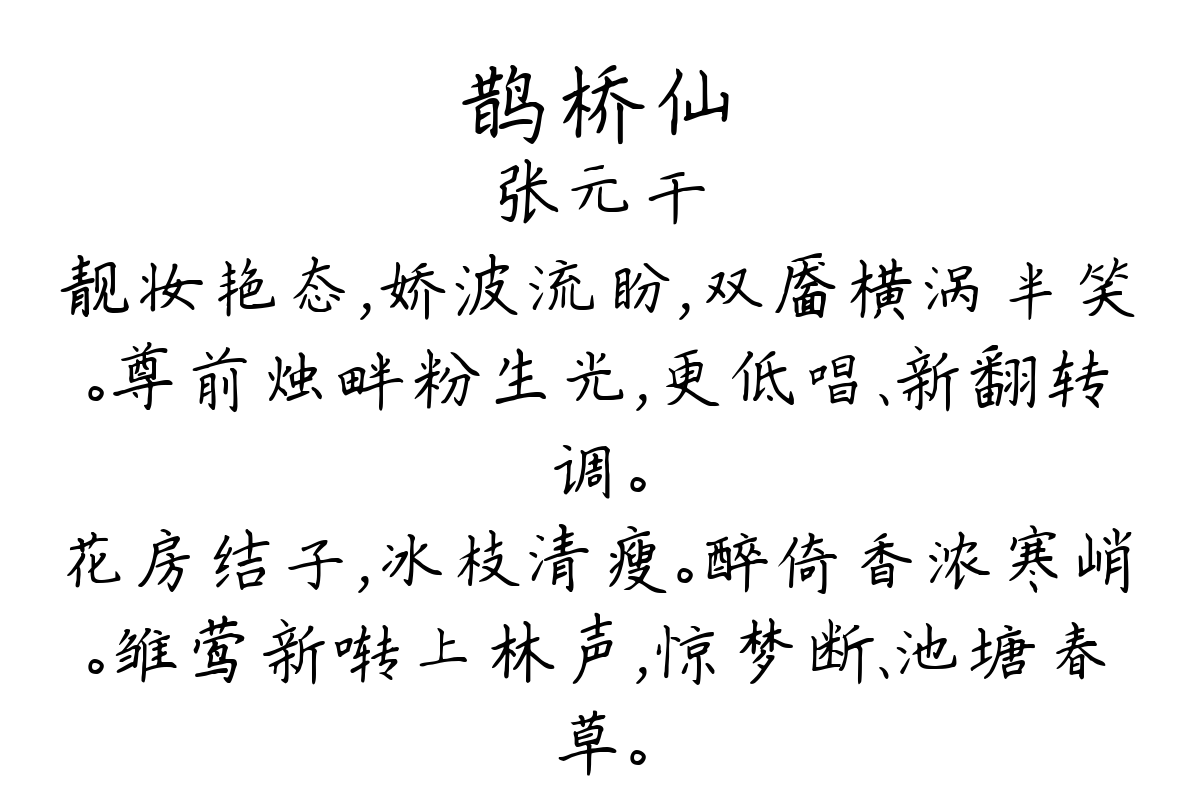 鹊桥仙
张元干
靓妆艳态,娇波流盼,双靥横涡半笑
。尊前烛畔粉生光,更低唱、新翻转
调。
花房结子,冰枝清瘦。醉倚香浓寒峭
。雏莺新啭上林声,惊梦断、池塘春
草。